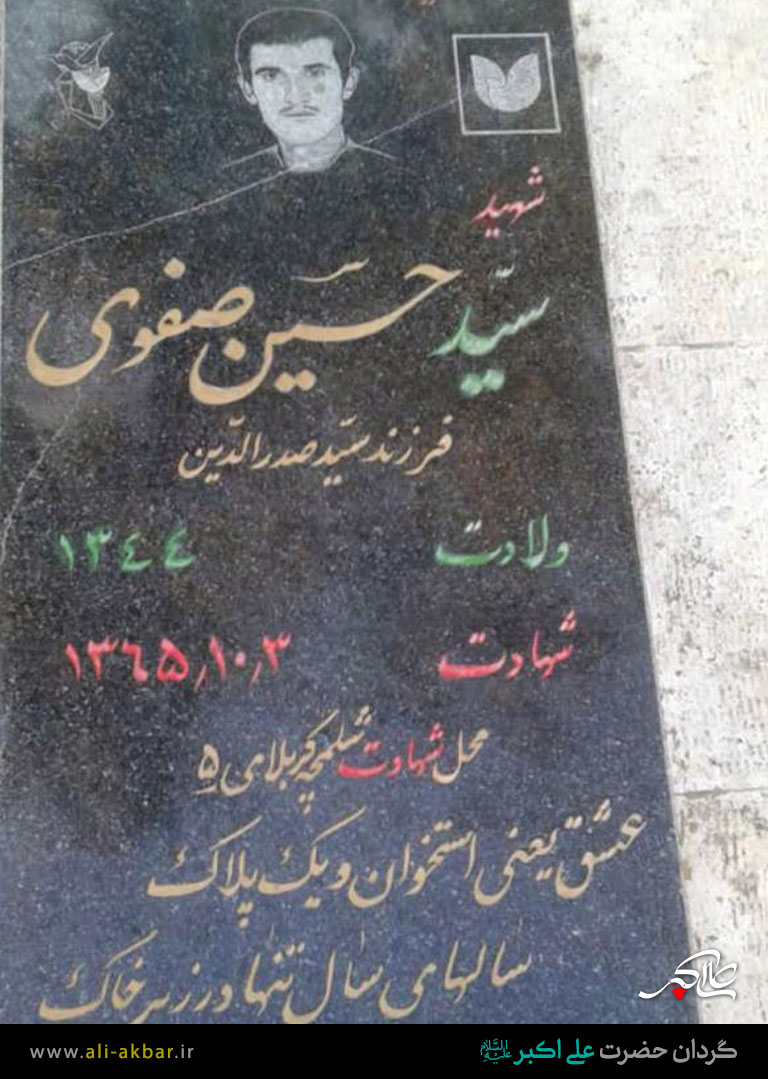 شهید
سیّد حسین صفوی
فرزند سیّد صدرالدّین
ولادت ۱۳٤٤
شهادت ۱۳٦۵٫۱۰٫۳
محل شهادت شلمچه کربلای ۵
عشق یعنی استخوان و یک پلاک
سالهای سال تنها در زیر خاک
علی اکبر
www.ali-akbar.ir گردان حضرت علی اکبر علیه السلام